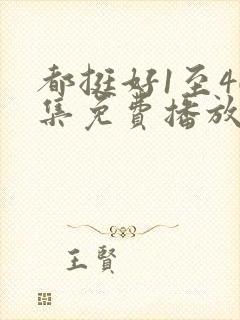 都挺好1至4
集免费播放
王贤